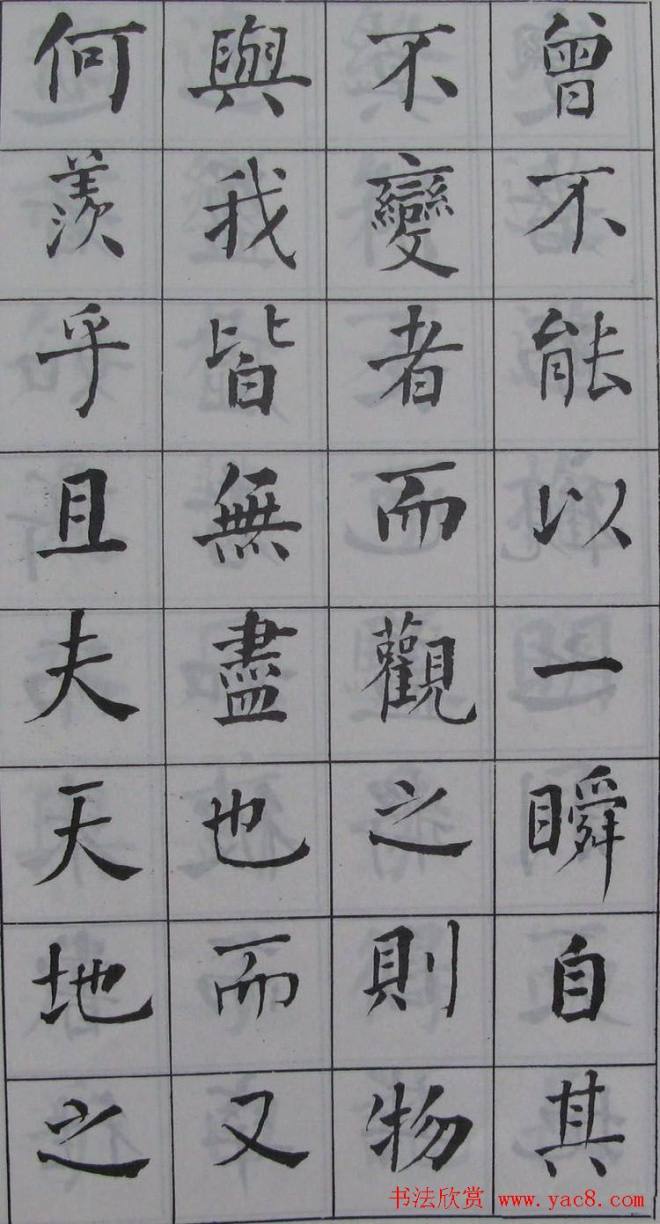 曾不能以一瞬自其
不變者而觀之則物
與我皆無盡也而又
何羨乎且夫天地之
书法欣赏 www.yac8.com